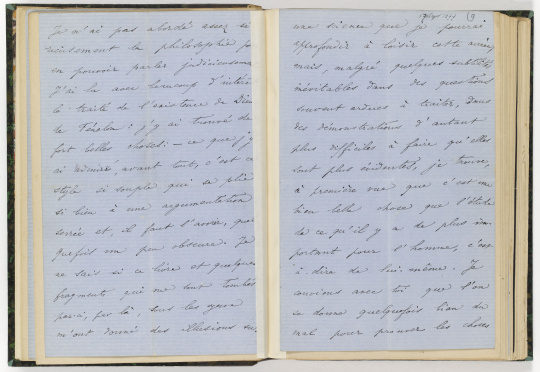 Je n'ai pas abordé assez sé
rieusement la philosophie pour
en pouvoir parler judicieusement.
J'ai lu avec beaucoup d'intérêt
le traité de l'existence de Dieu
de Fénelon : j'y ai trouvé de
fort belles choses : — ce que j'y
ai admiré, avant tout, c'est ce
style si souple qui se plie
si bien à une argumentation
serrée et, il faut l'avouer, quel
quefois un peu obscure. Je
ne sais si ce livre et quelques
fragments qui me sont tombés
par-ci, par là, sous les yeux
m'ont donné des illusions sur
une science que je pourrai
approfondir à loisir cette année
mais, malgré quelques subtilités
inévitables dans des questions
souvent ardues à traiter, dans
des démonstrations d'autant
plus difficiles à faire qu'elles
sont plus évidentes, je trouve,
à première vue que c'est une
bien belle chose que l'étude
de ce qu'il y a de plus im-
portant pour l'homme, c'est
à dire de lui-même. Je
conviens avec toi que l'on
se donne quelquefois bien du
mal pour prouver les choses